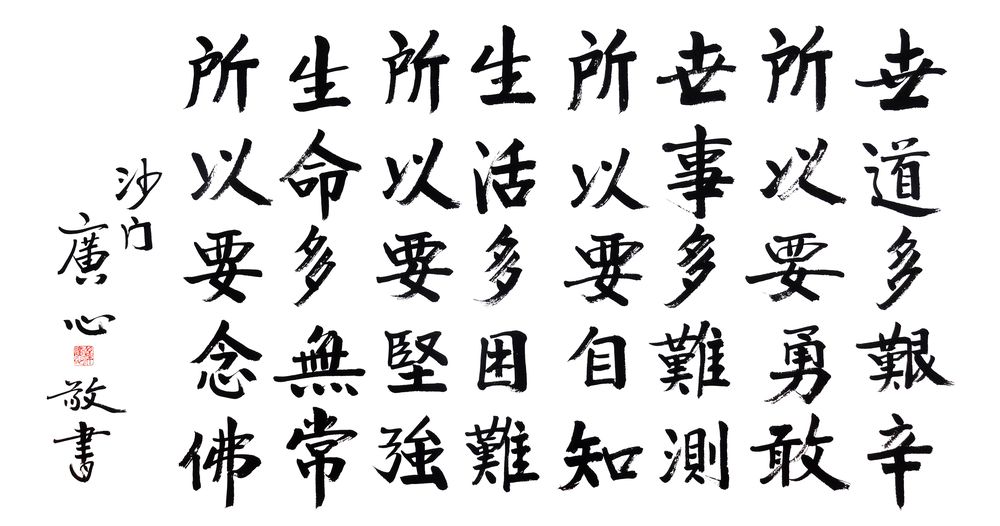 世道多艱辛
所以要勇敢
世事多難測
所以要自知
生活多困難
所以要堅強
生命多無常
所以要念佛
沙门
廣心
敬書